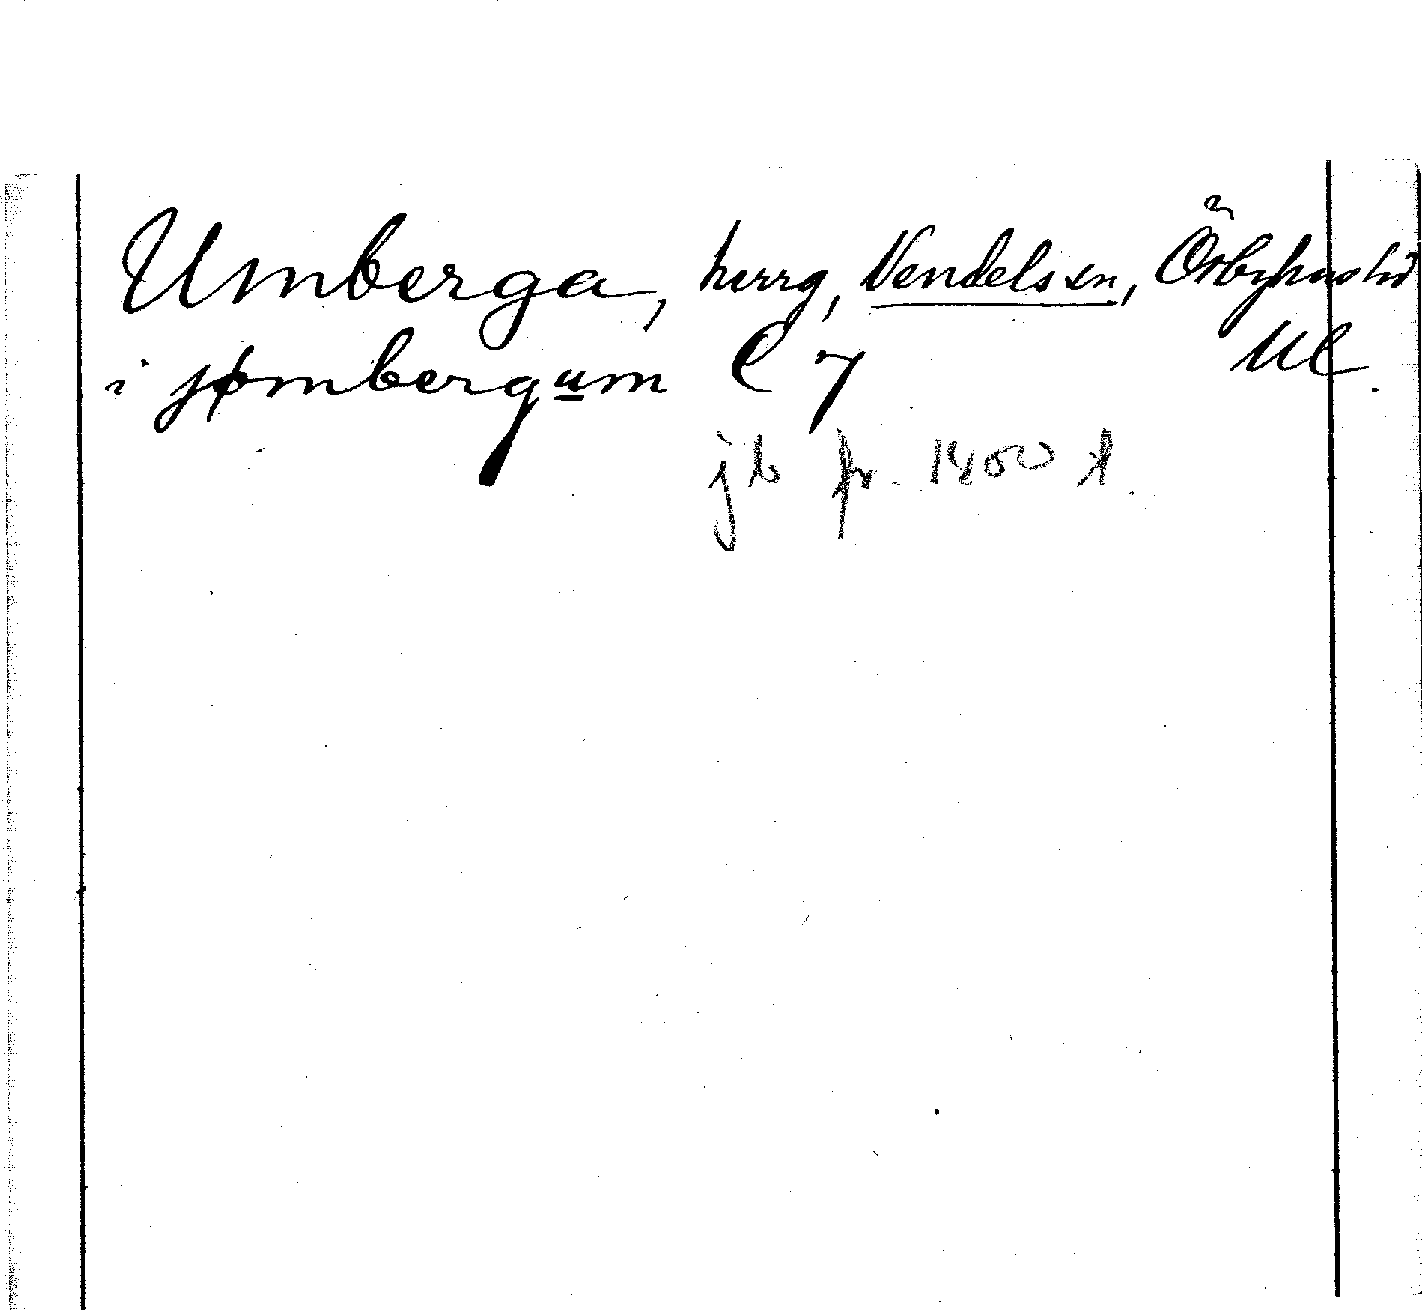 Umberga, herrg, Vendels sn, Örbyhus hd
i jømbergum C 7 Ul.
jb fr. 1400 t.